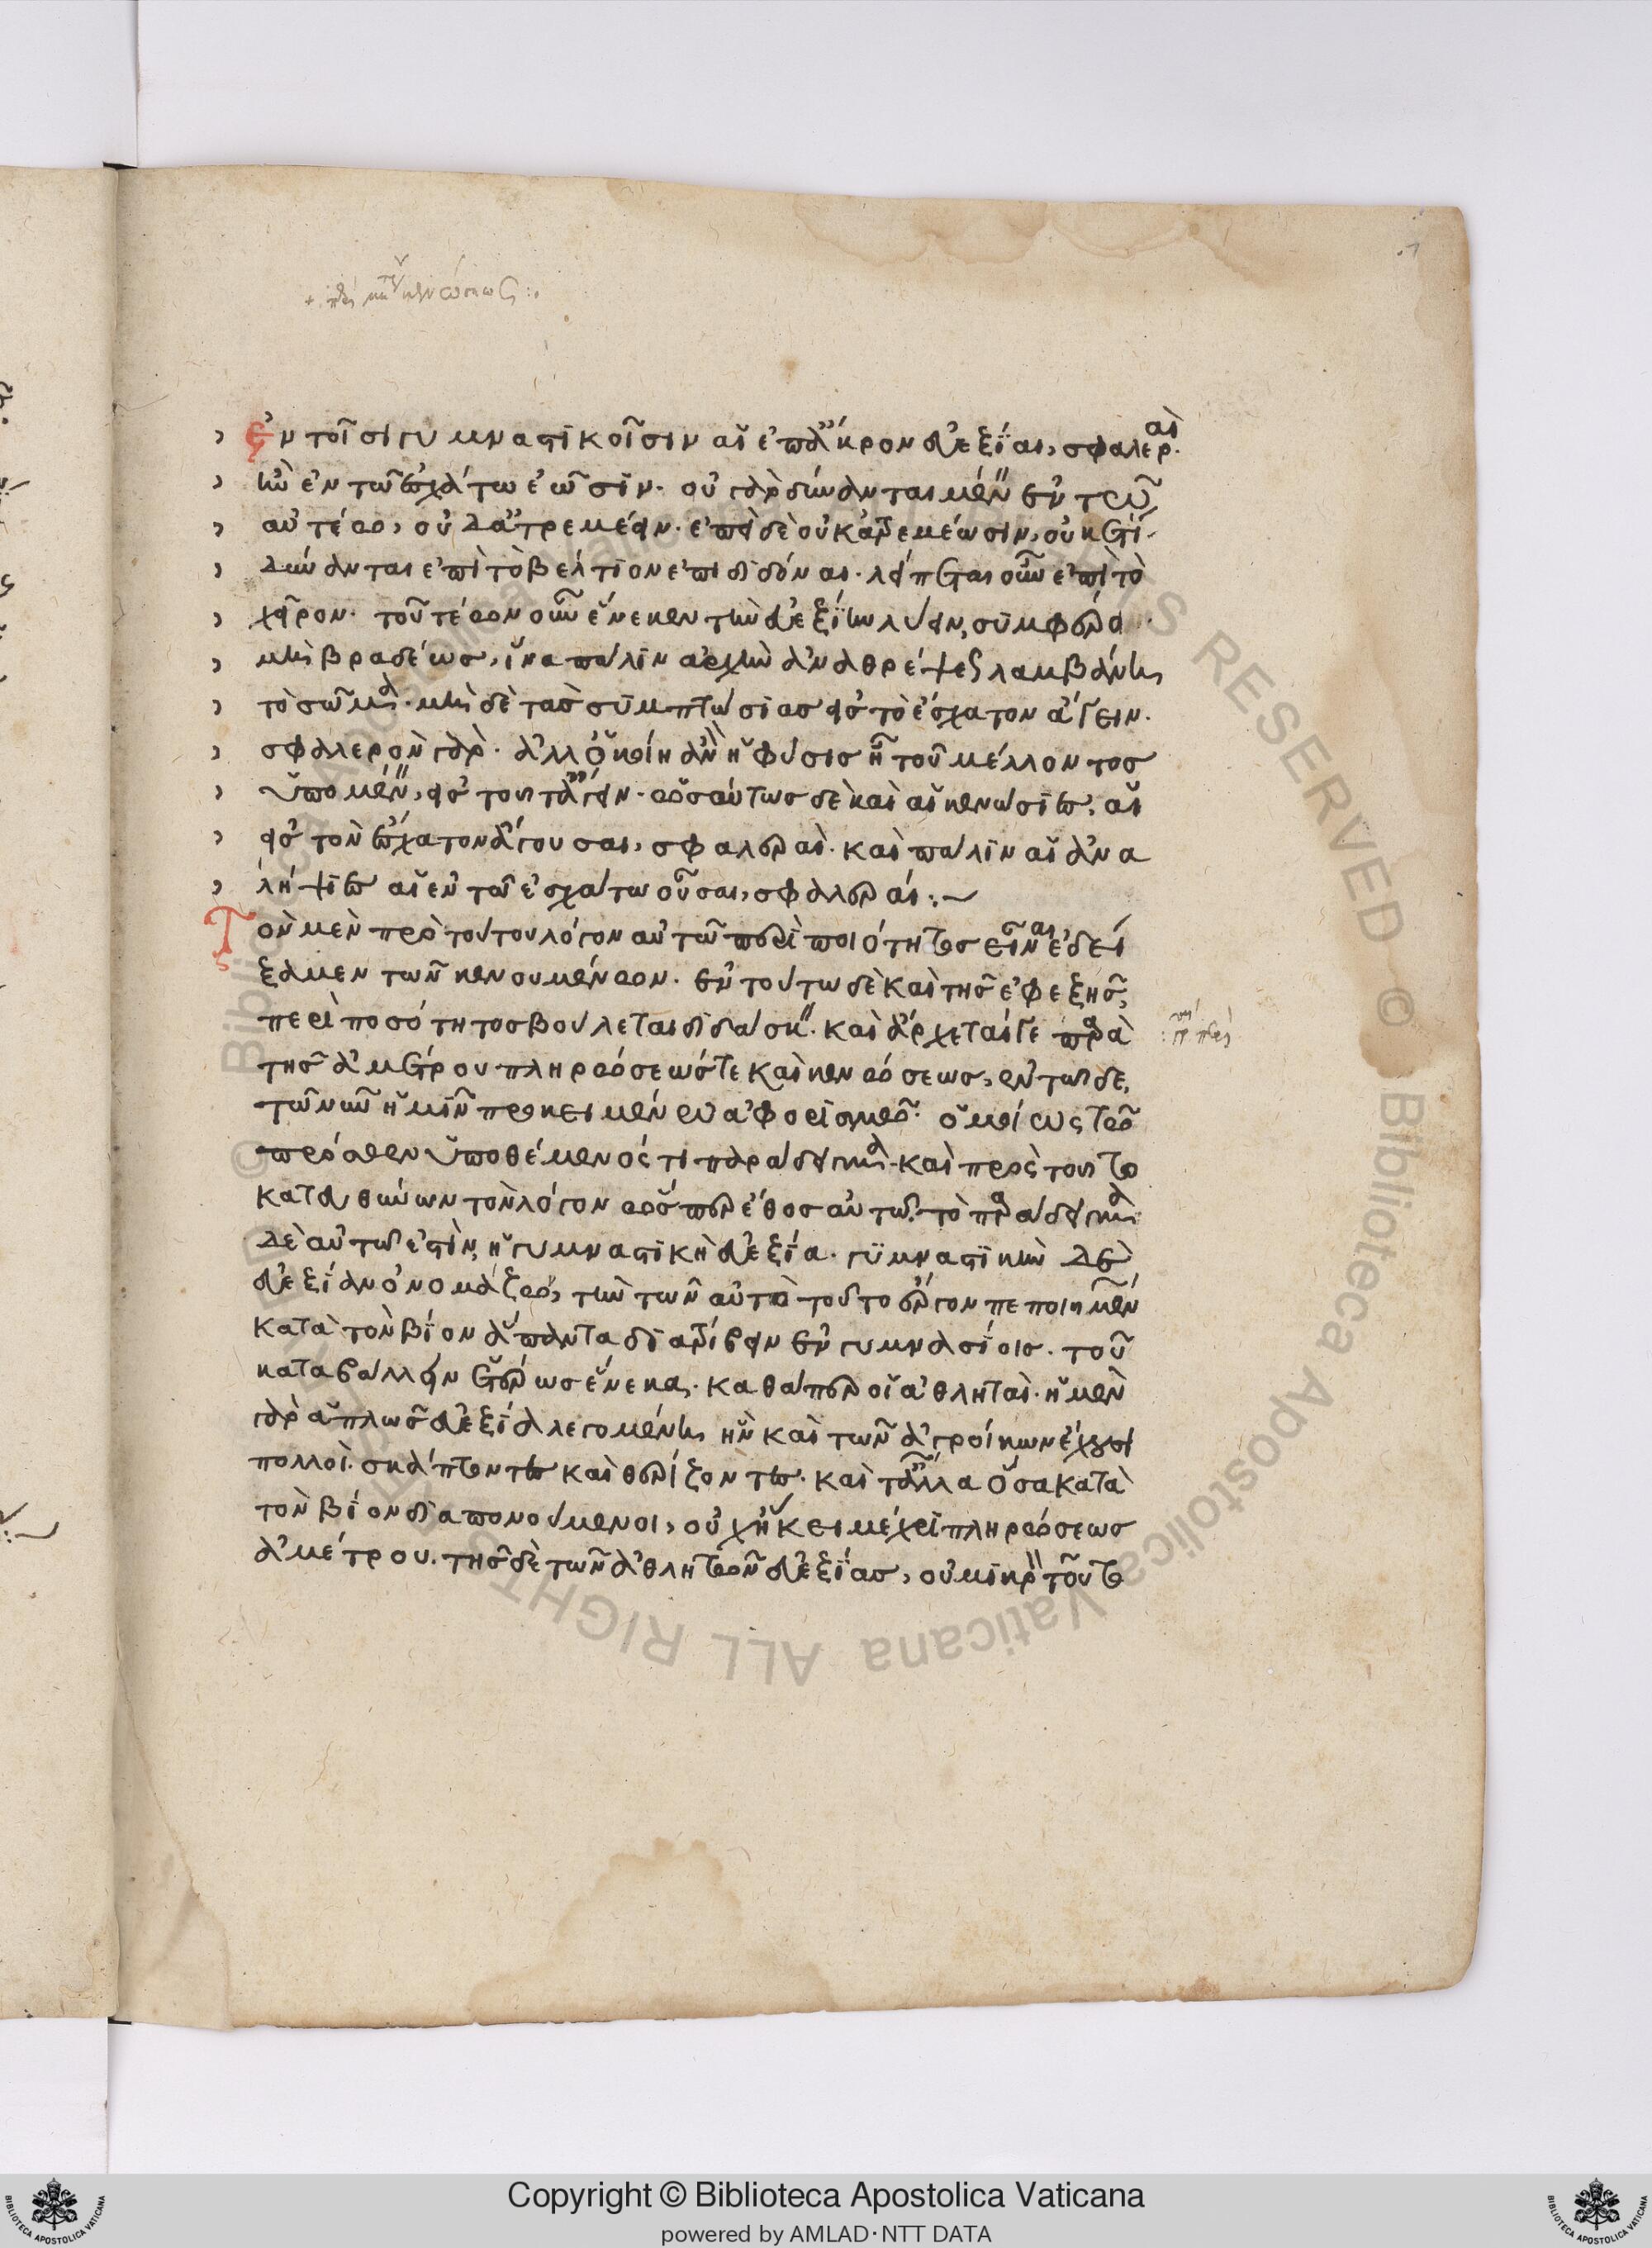 Ἐν τοῖσι γυμναστικοῖσιν αἱ ἐπ' ἄκρον εὐεξίαι, σφαλεραὶ
ἢν ἐν τῷ ἐσχάτῳ ἔωσιν. οὐ γὰρ δύνανται μένειν ἐν τῷ
αὐτέῳ, οὐδ' ἀτρεμέειν. ἐπεὶ δὲ οὐκ ἀτρεμέωσιν, οὐκέτι
δύνανται ἐπὶ τὸ βέλτιον ἐπιδιδόναι. λείπεται οὖν ἐπὶ τὸ
χεῖρον. τουτέων οὖν ἕνεκεν τὴν εὐεξίην λύειν, συμφέρει
μὴ βραδέως, ἵνα πάλιν ἀρχὴν ἀναθρέψεως λαμβάνῃ
τὸ σῶμα. μὴ δὲ τὰς συμπτώσιας εἰς τὸ ἔσχατον ἄγειν.
σφαλερὸν γάρ. ἀλλ' ὁκοίη ἂν ἡ φύσις ᾖ τοῦ μέλλοντος
ὑπομένειν, εἰς τοῦτο ἄγειν. ὡσαύτως δὲ καὶ αἱ κενώσιες, αἱ
εἰς τὸν ἔσχατον ἄγουσαι, σφαλεραί. καὶ πάλιν αἱ ἀνα
λήψιες αἱ ἐν τῷ ἐσχάτῳ οὖσαι, σφαλεραί:~
Τὸν μὲν πρὸ τούτου λόγον αὐτῶ περὶ ποιότητος εἶναι ἐδεί
ξαμεν τῶν κενουμένων. ἐν τούτω δὲ καὶ τῆς ἐφεξῆς,
περὶ ποσότητος βούλεται διδάσκειν. καὶ ἄρχεταί γε παρὰ
τῆς ἀμέτρου πληρώσεώς τε καὶ κενώσεως, ἐν τῶδε
τῶ νῦν ἡμῖν προκειμένω ἀφορισμῶ. ὁμοίως τῶ
πρόσθεν ὑποθέμενός τι παράδειγμα. καὶ πρὸς τοῦτο
κατευθύνων τὸν λόγον ὥσπερ ἔθος αὐτῶ. τὸ παράδειγμα
δὲ αὐτῶ ἐστὶν, ἡ γυμναστικὴ εὐεξία. γυμναστικὴν δὲ
εὐεξίαν ὀνομάζω, τὴν τῶν αὐτὸ τοῦτο ἔργον πεποιημένων
κατὰ τὸν βίον ἅπαντα διατρίβειν ἐν γυμνασίοις. τοῦ
καταβάλλειν ἑτέρως ἕνεκα. καθάπερ οἱ ἀθληταί. ἡ μὲν
γὰρ ἁπλῶς εὐεξία λεγομένη ἣν καὶ τῶν ἀγροίκων ἔχουσι
πολλοί. σκάπτοντες καὶ θερίζοντες. καὶ τἄλλα ὅσα κατὰ
τὸν βίον διαπονούμενοι, οὐχ ἥκει μέχρι πληρώσεως
ἀμέτρου. τῆς δὲ τῶν ἀθλητῶν εὐεξίας, οὐ μικρὸν τοῦτο
Copyright © Biblioteca Apostolica Vaticana
powered by AMLAD·NTT DATA